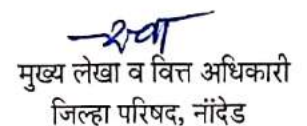 मुख्य लेखा व वित्त अधिकारी
जिल्हा परिषद, नांदेड